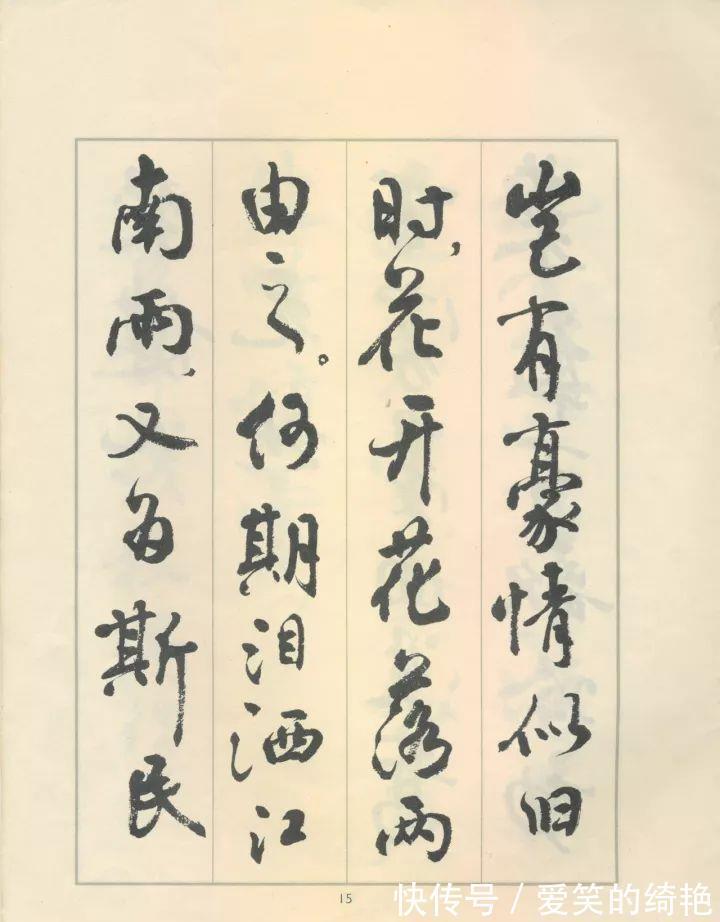 岂有豪情似旧
时，花开花落两
由之。何期泪洒江
南雨，又为斯民
15
快传号 / 爱笑的绮艳